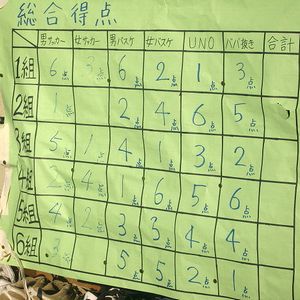 総合得点
男サッカー 女サッカー 男バスケ 女バスケ UNO ババ抜き 合計
1組 6点 3点 6点 2点 1点 3点
2組 1点 2点 4点 6点 5点
3組 5点 1点 4点 1点 3点 2点
4組 2点 4点 1点 6点 5点 6点
5組 4点 2点 3点 3点 4点 4点
6組 3点 5点 5点 2点 1点